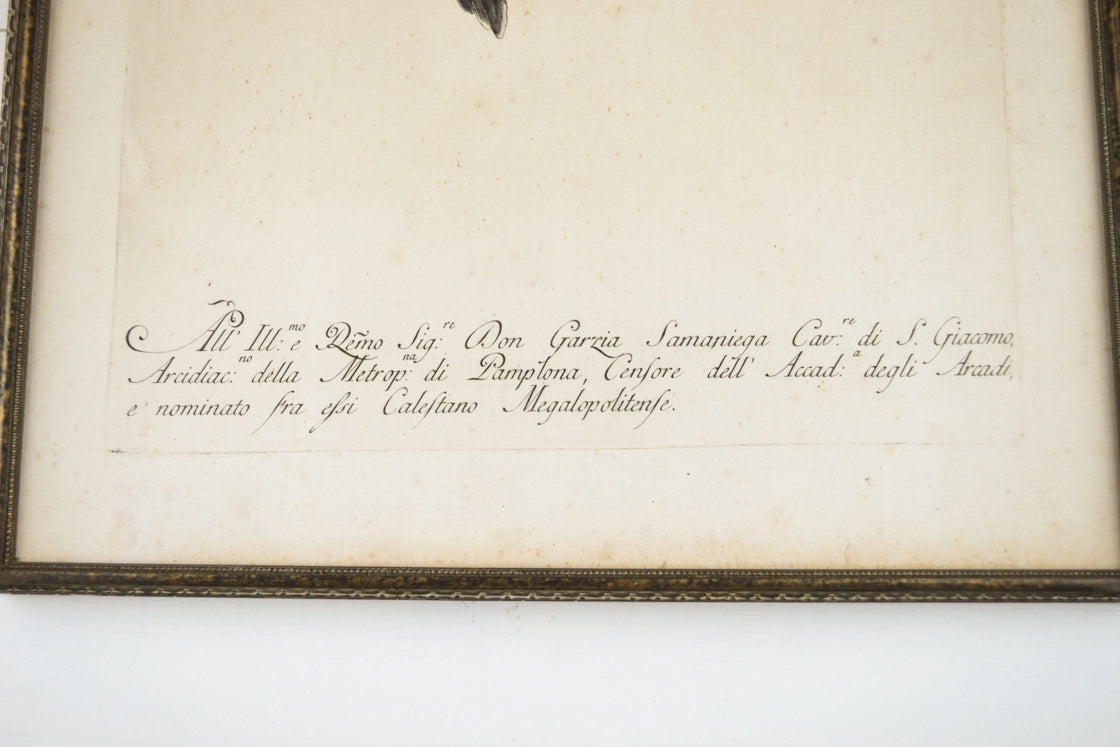 All' Ill:ᵐᵒ e Rẽmo Sig:ʳᵉ Don Garzia Samaniega Cav:ʳᵉ di S. Giacomo,
Arcidiac:ⁿᵒ della Metrop:ⁿᵃ di Pamplona, Cenſore dell' Accad:ᵃ degli Arcadi,
e nominato fra eſsi Caleſtano Megalopolitenſe.